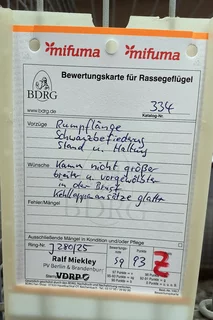 mifuma mifuma
BDRG
www.bdrg.de
Bewertungskarte für Rassegeflügel
334
Katalog-Nr.
Vorzüge
Rumpflänge
Schwarzbefiederung
Stand u. Haltung
Wünsche
Kamm nicht größer
breiter u. vorgewölbter
in der Brust
Kehllappenansätze glatter
Fehler/Mängel
BDRG
Ausschließende Mängel in Kondition und/oder Pflege
Ring-Nr. J280/25
Ralf Miekley
PV Berlin & Brandenburg
VDRP
sg 93 Z